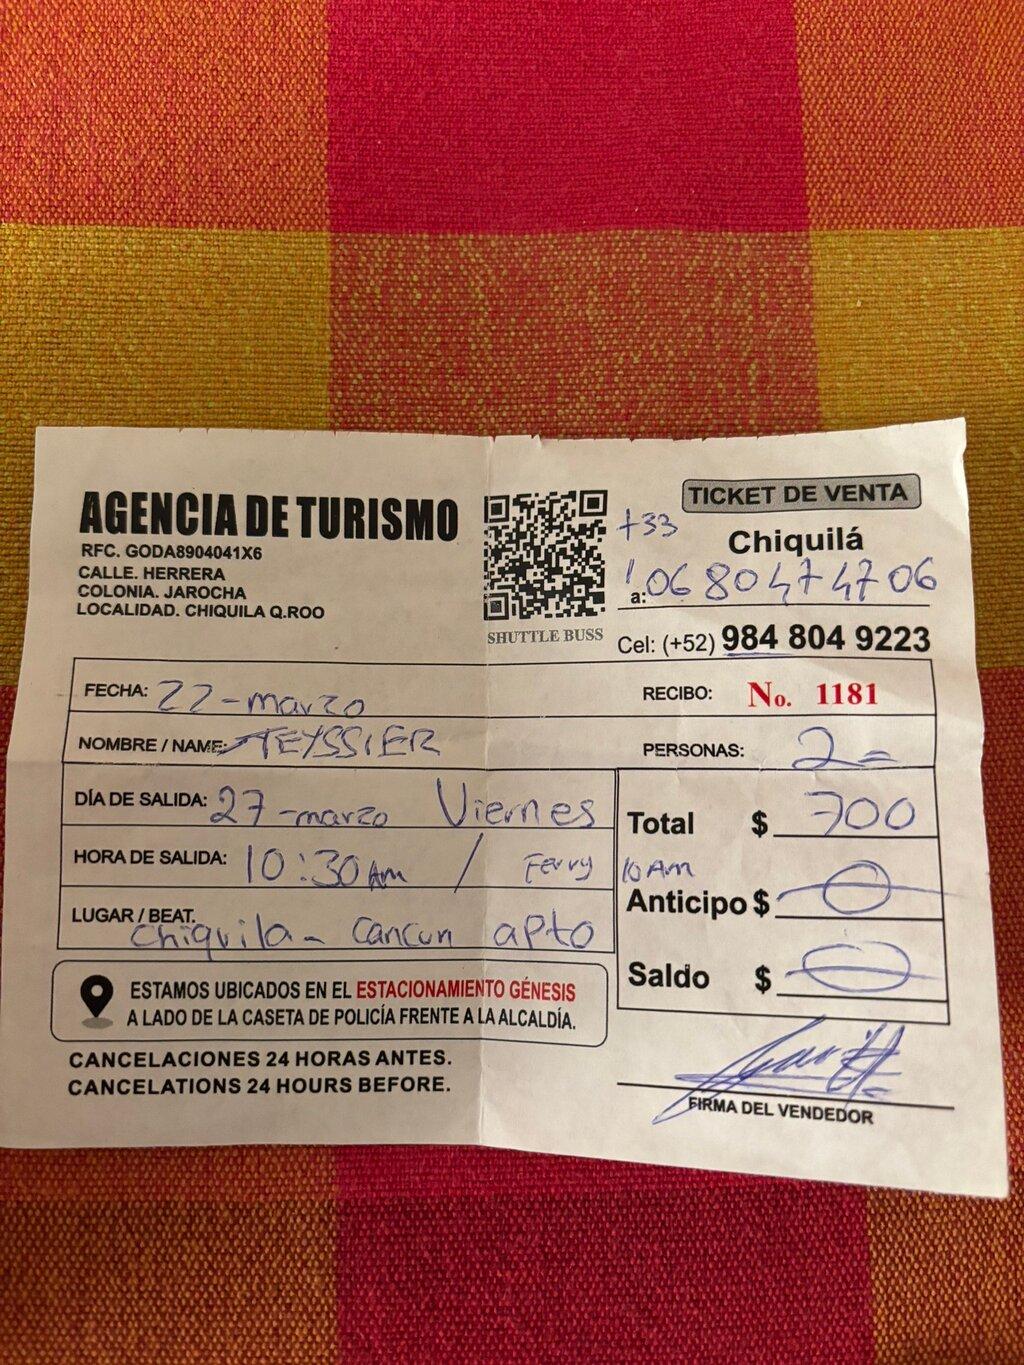 AGENCIA DE TURISMO
RFC. GODA8904041X6
CALLE. HERRERA
COLONIA. JAROCHA
LOCALIDAD. CHIQUILA Q.ROO
SHUTTLE BUSS
TICKET DE VENTA
+33 Chiquilá
a: 06 80 47 47 06
Cel: (+52) 984 804 9223
FECHA: 22-marzo RECIBO: No. 1181
NOMBRE / NAME: TEYSSIER PERSONAS: 2=
DÍA DE SALIDA: 27-marzo Viernes
HORA DE SALIDA: 10:30 Am / Ferry 10 Am
LUGAR / BEAT. chiquila - Cancun apto
Total $ 700
Anticipo $ 0
Saldo $ 0
ESTAMOS UBICADOS EN EL ESTACIONAMIENTO GÉNESIS
A LADO DE LA CASETA DE POLICÍA FRENTE A LA ALCALDÍA.
CANCELACIONES 24 HORAS ANTES.
CANCELATIONS 24 HOURS BEFORE.
FIRMA DEL VENDEDOR